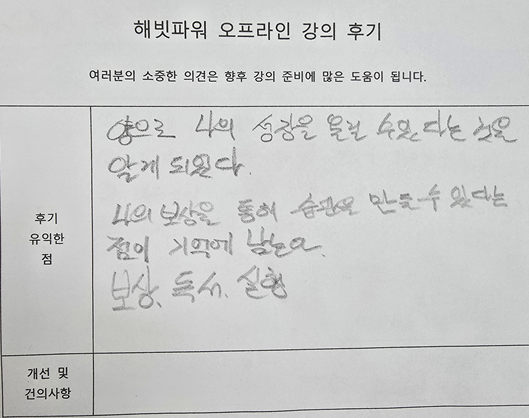 해빗파워 오프라인 강의 후기
여러분의 소중한 의견은 향후 강의 준비에 많은 도움이 됩니다.
후기
유익한
점
앞으로 나의 성장을 올릴 수 있다는 것을
알게 되었다.
나의 보상을 통해 습관을 만들 수 있다는
점이 기억에 남는다.
보상, 독서, 실행
개선 및
건의사항